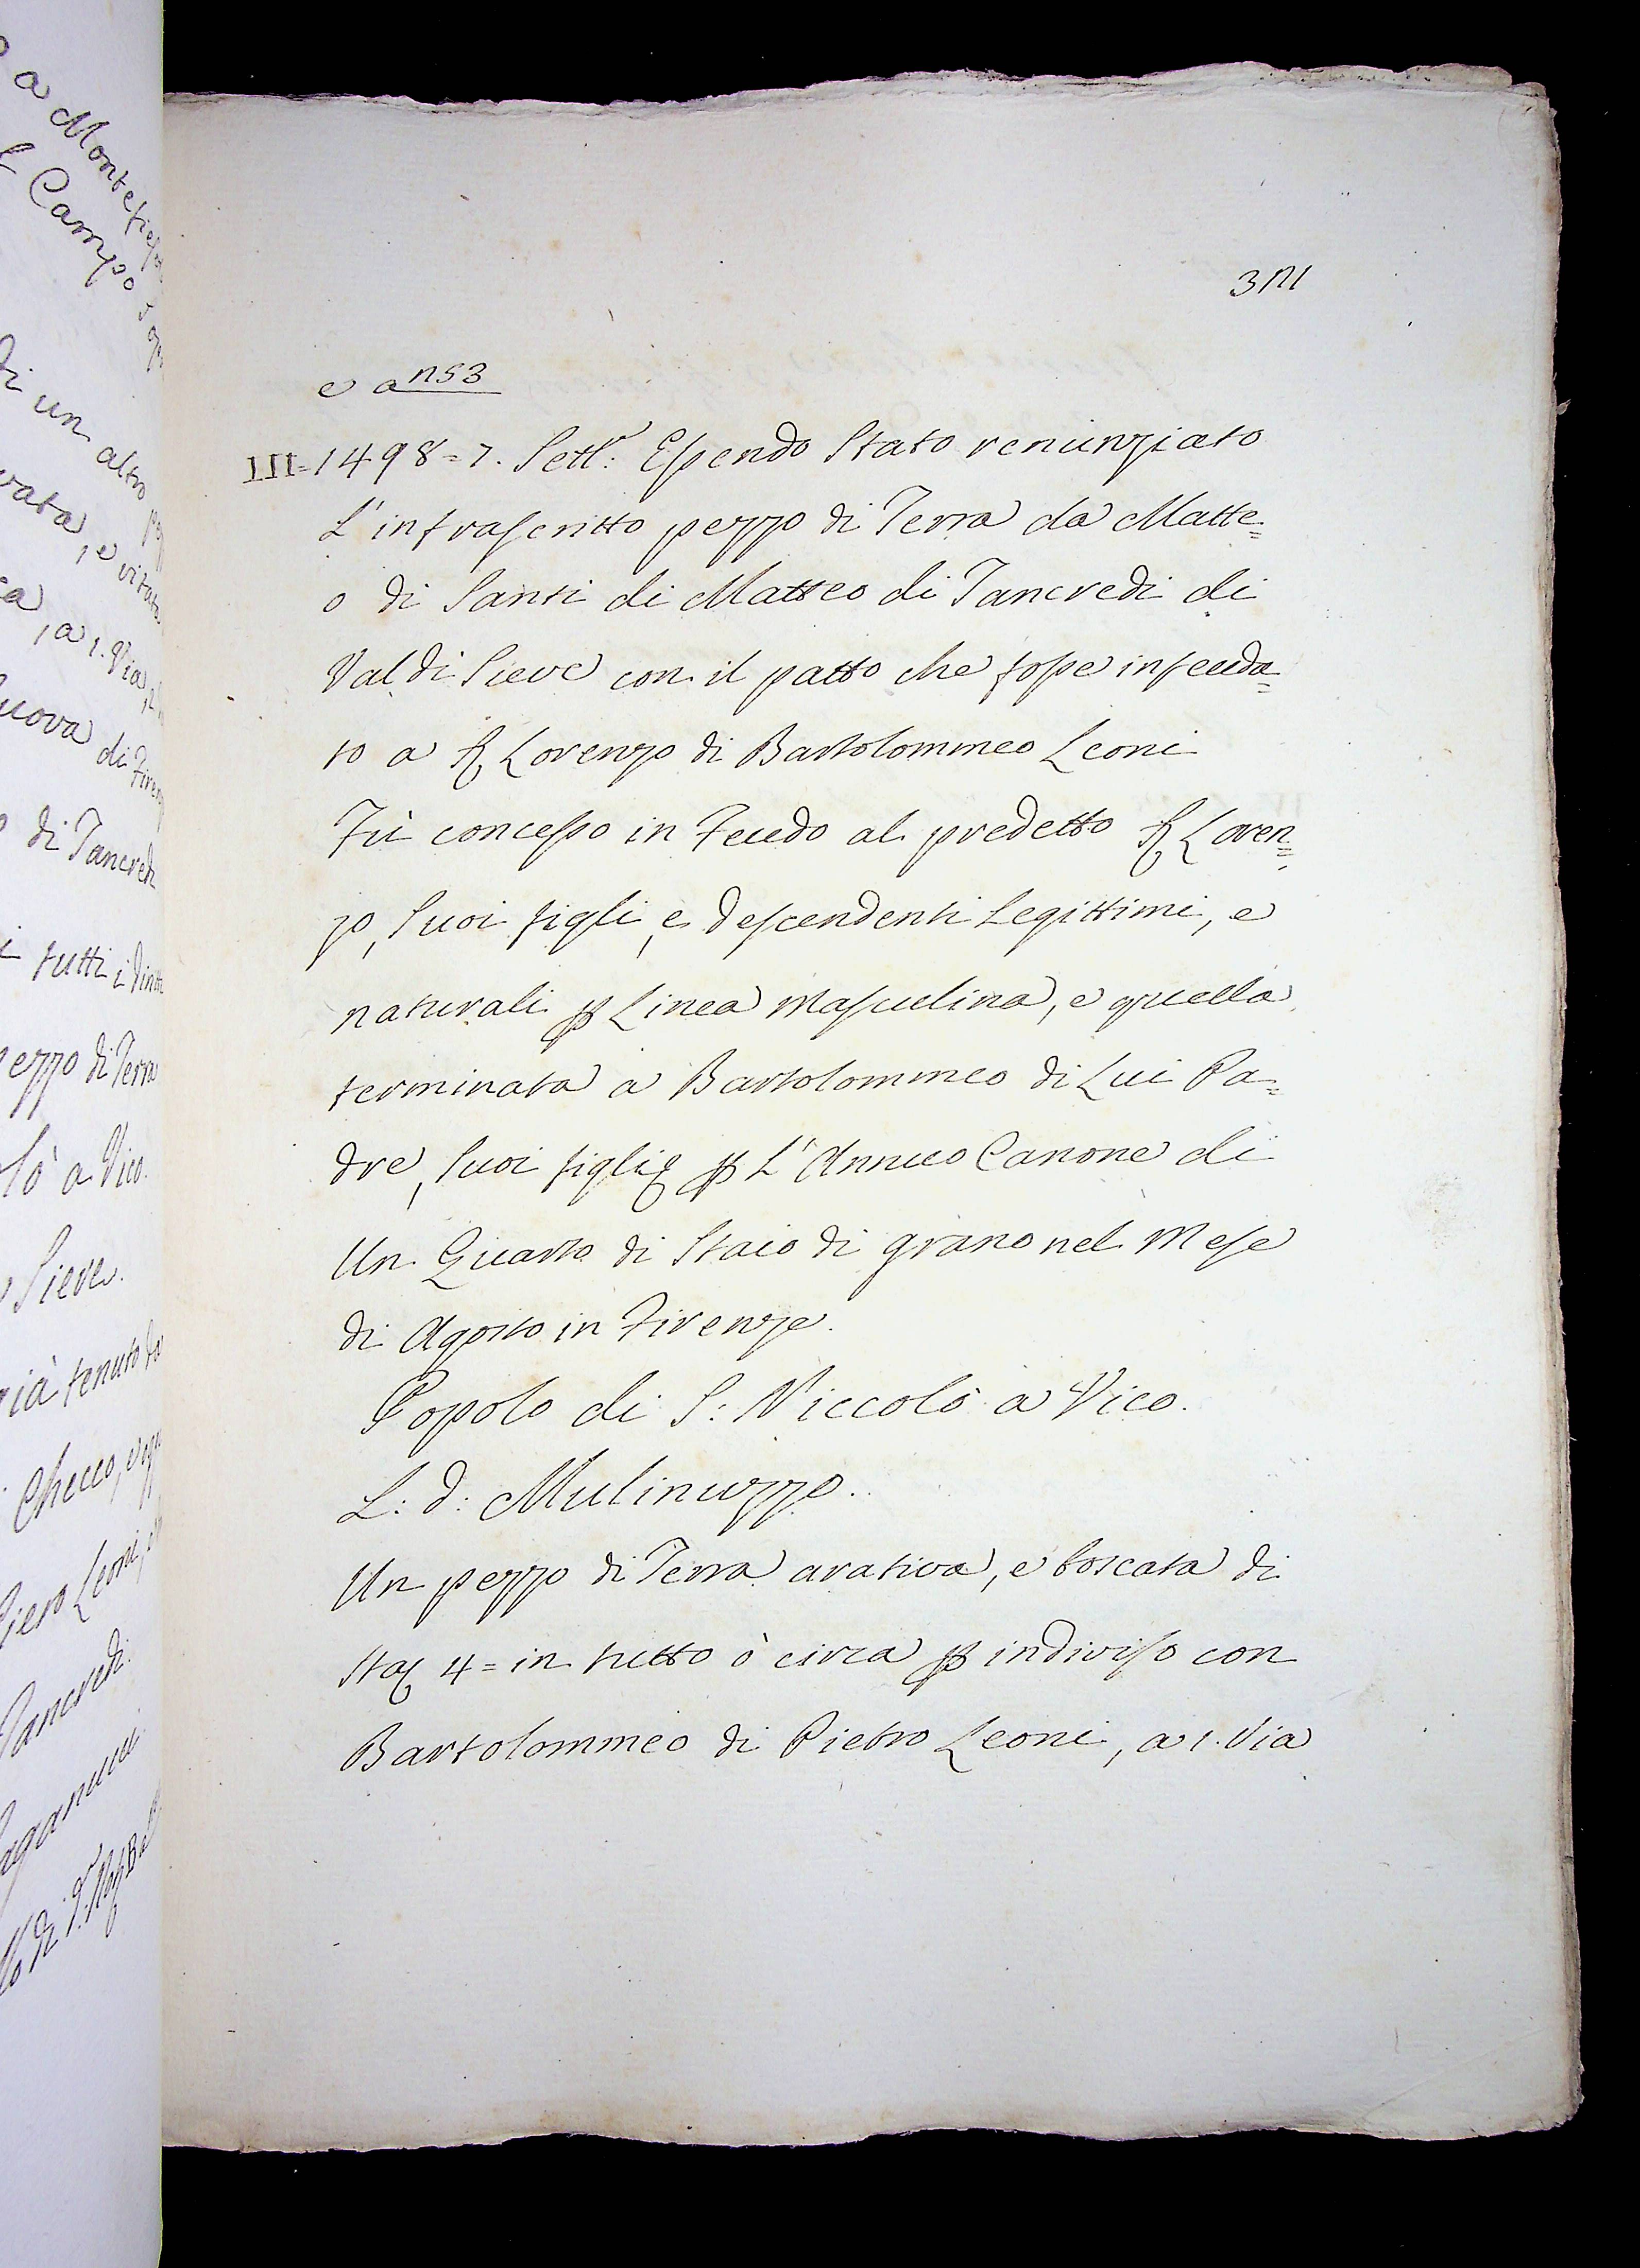 e a 153
III=1498=7. Sett.e: Essendo Stato renunziato
L'infrascritto pezzo di Terra da Matte=
o di Santi di Matteo di Tancredi di
Val di Sieve con il patto che fosse infeuda=
to a S. Lorenzo di Bartolommeo Leoni
Fù concesso in Feudo al predetto S. Loren=
zo, Suoi figli, e descendenti Legittimi, e
naturali p Linea Masculina, e quella
terminata a Bartolommeo di Lui Pa=
dre, Suoi figli p L'Annuo Canone di
Un Quarto di Staio di grano nel Mese
di Agosto in Firenze.
Popolo di S: Niccolò a Vico.
L: d: Mulinuzzo.
Un pezzo di Terra arativa, e boscata di
Sta 4= in tutto ò circa p indiviso con
Bartolommeo di Pietro Leoni, a 1. Via
a Montefies
Campo
di un altro
vata, e vitata
a 1. Via,
nuova di Firenz
di Tancredi
tutti i diritti
pezzo di Terra
lò a Vico.
Sieve.
già tenuto da
Checco,
Piero Leoni,
Tancredi.